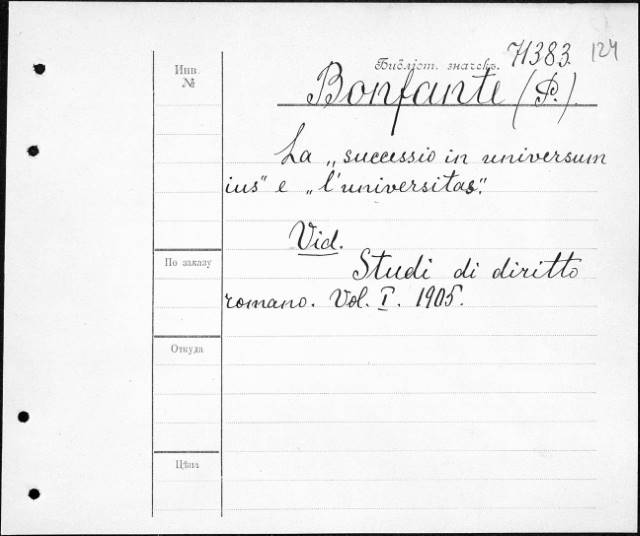 Инв.
№
Библіот. значекъ. 71383. 124
Bonfante (P.)
La „successio in universum
ius" e „l'universitas".
Vid.
Studi di diritto
romano. Vol. I. 1905.
По заказу
Откуда
Цѣна